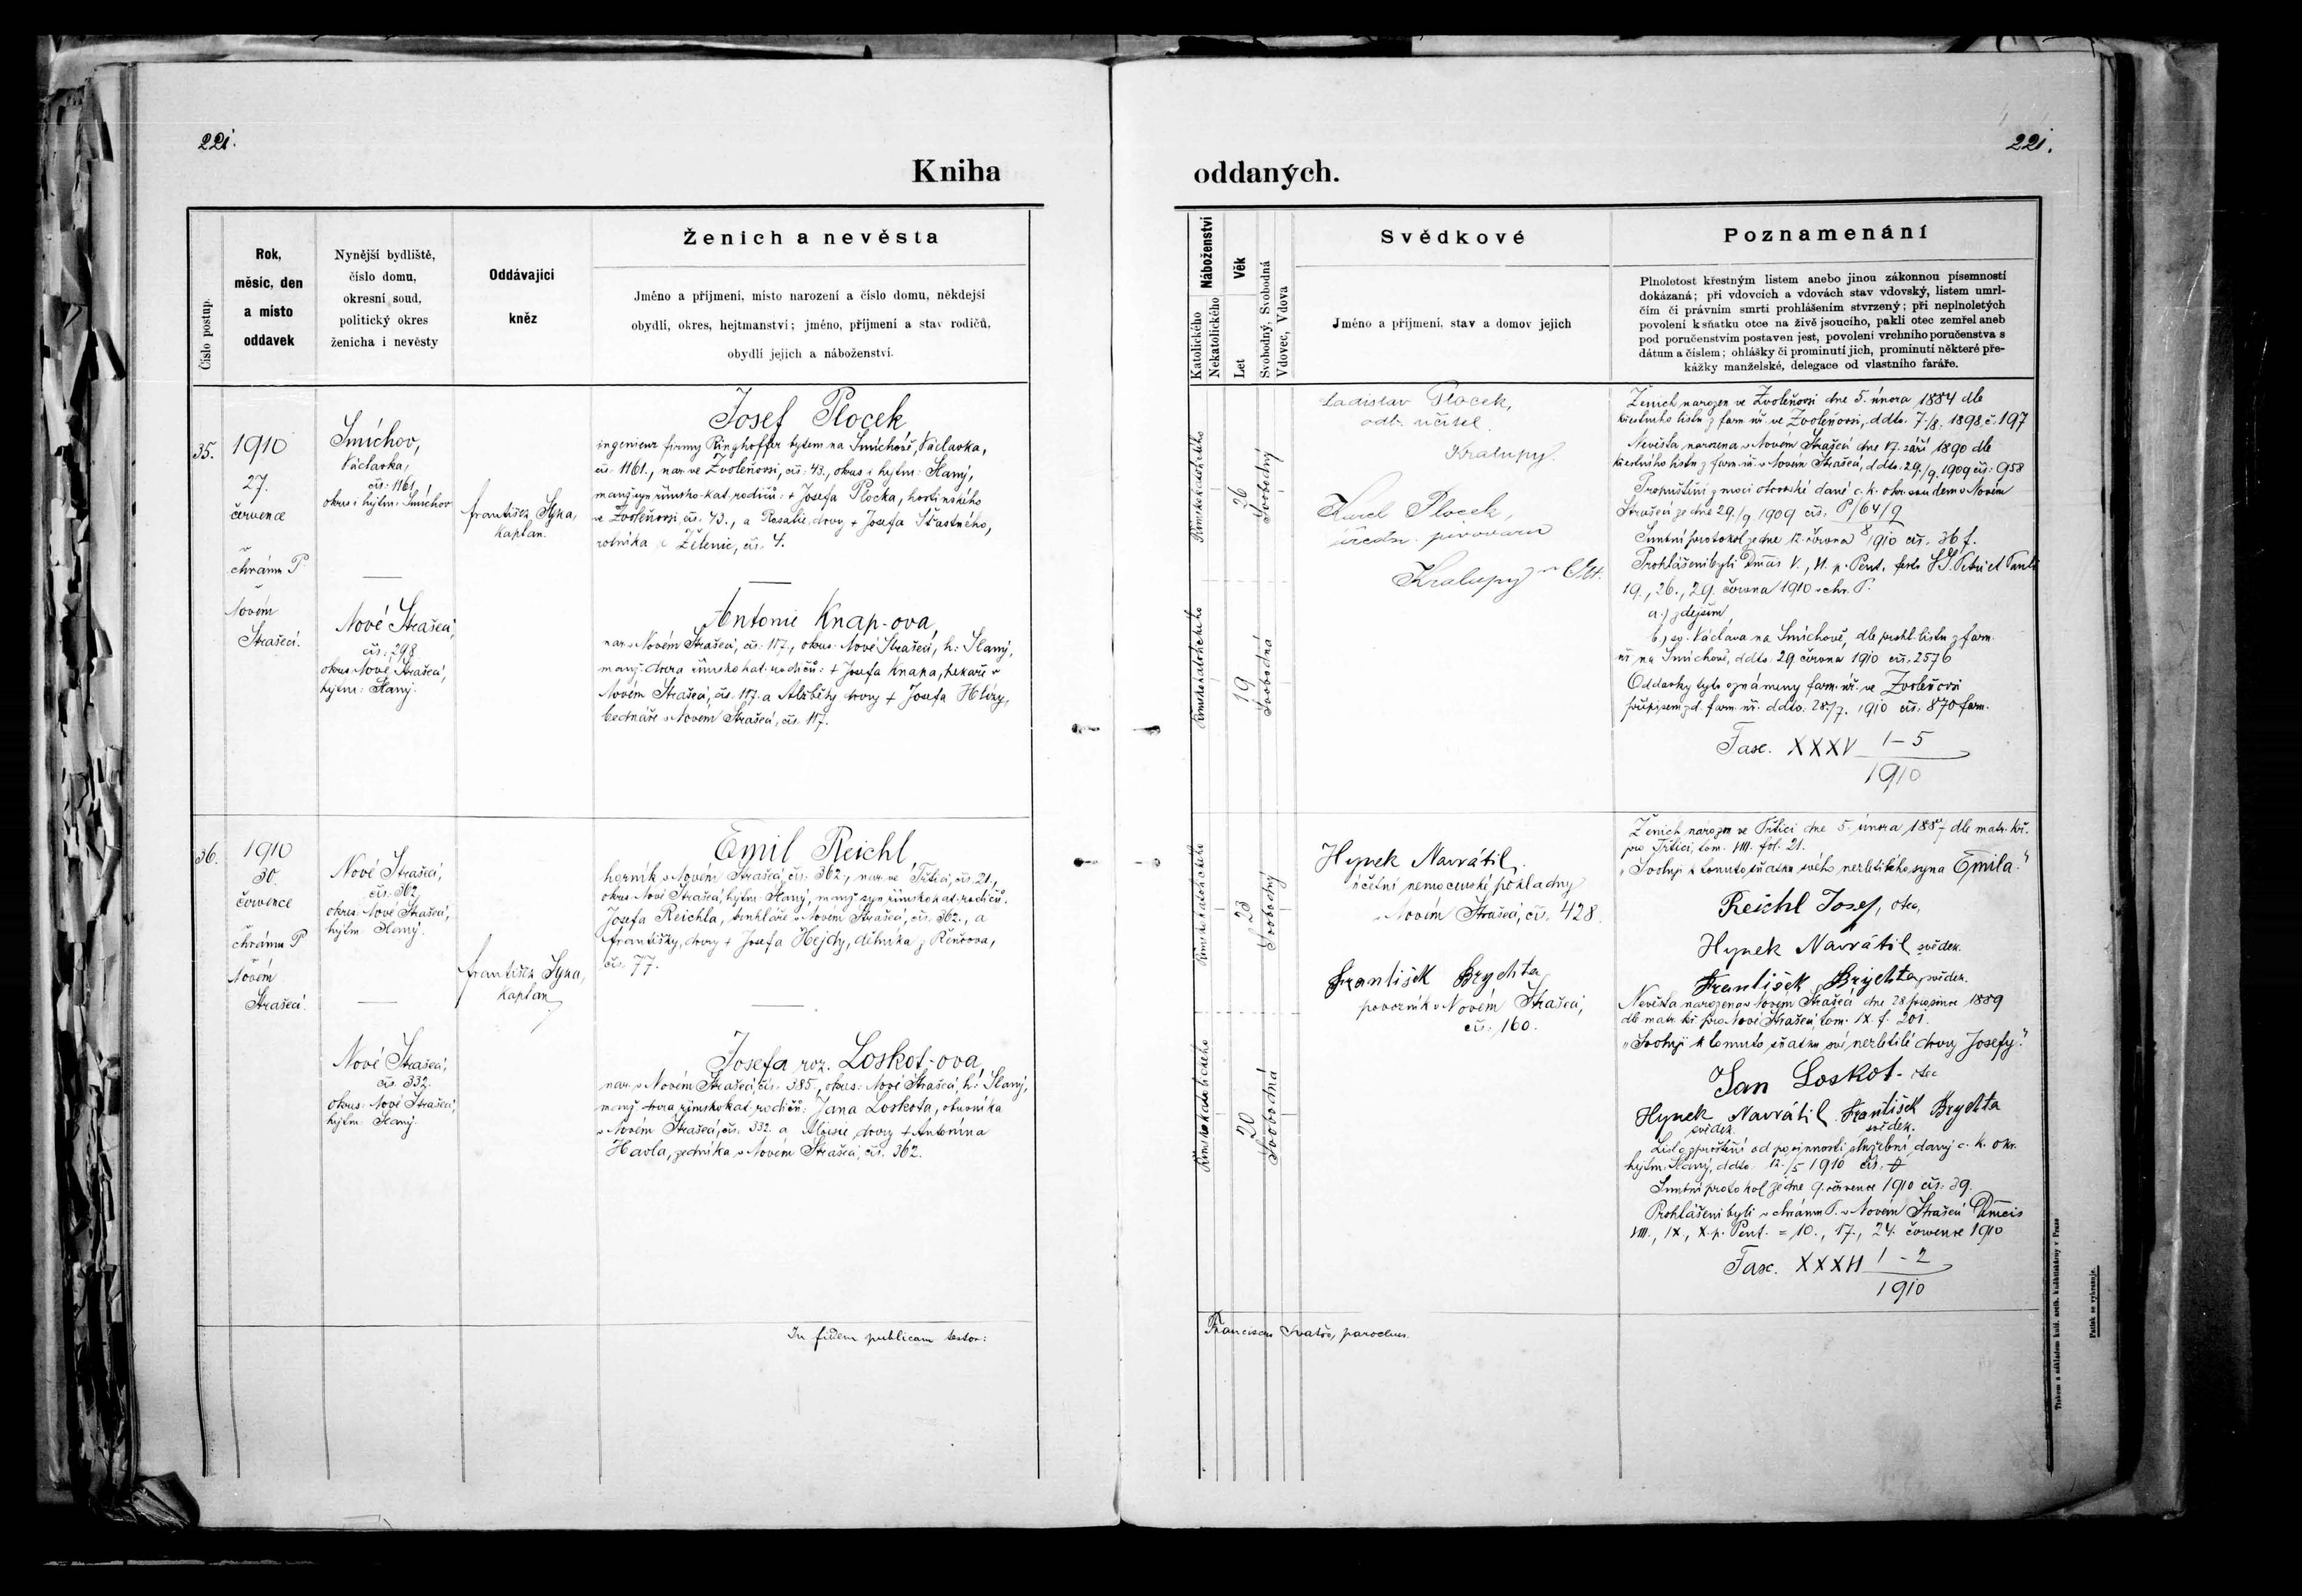 221.
Kniha
Číslo postup.
Rok,
měsíc, den
a místo
oddavek
Nynější bydliště,
číslo domu,
okresní soud,
politický okres
ženicha i nevěsty
Oddávající
kněz
Ženich a nevěsta
Jméno a příjmení, místo narození a číslo domu, někdejší
obydlí, okres, hejtmanství; jméno, příjmení a stav rodičů,
obydlí jejich a náboženství.
35.
1910
27.
července
v
chrámu P
v
Novém
Strašecí.
Smíchov,
Václavka,
čís: 1161,
okres i hejtm: Smíchov
Nové Strašecí,
čís: 298
okres: Nové Strašecí,
hejtm: Slaný.
František Syka,
kaplan.
Josef Plocek
ingenieur firmy Ringhoffer bytem na Smíchově, Václavka,
čís: 1161., nar. ve Zvoleňovsi, čís: 43., okres i hejtm: Slaný,
manž. syn římsko-kat. rodičů: + Josefa Plocka, hostinského
ve Zvoleňovsi, čís. 43., a Rosalie, dcery + Josefa Šťastného,
rolníka z Želenic, čís. 4.
Antonie Knap-ova,
nar. v Novém Strašecí, čís: 117., okres: Nové Strašecí, h: Slaný,
manž. dcera římskokat. rodičů: + Josefa Knapa, pekaře v
Novém Strašecí, čís. 117. a Alžběty dcery + Josefa Hlízy,
bednáře v Novém Strašecí, čís. 117.
36.
1910
30.
července
v
chrámu P
v
Novém
Strašecí.
Nové Strašecí,
čís: 362,
okres: Nové Strašecí,
hejtm: Slaný.
Nové Strašecí,
čís. 332.
okres: Nové Strašecí,
hejtm: Slaný.
František Syka,
kaplan
Emil Reichl,
horník v Novém Strašecí, čís: 362., nar. ve Třtici, čís. 21.,
okres Nové Strašecí, hejtm: Slaný, manž. syn římskokat. rodičů.
Josefa Reichla, truhláře v Novém Strašecí, čís. 362., a
Františky, dcery + Josefa Hejdy, dělníka z Řenčova,
čís. 77.
Josefa roz. Loskot-ova,
nar. v Novém Strašecí, čís. 385., okres: Nové Strašecí, h: Slaný,
manž. dcera římskokat. rodičů: Jana Loskota, obuvníka
v Novém Strašecí, čís. 332. a Aloisie dcery + Antonína
Havla, zedníka v Novém Strašecí, čís. 362.
In fidem publicam testor:
221.
oddaných.
Náboženství
Katolického
Nekatolického
Věk
Let
Svobodný, Svobodná
Vdovec, Vdova
Svědkové
Jméno a příjmení, stav a domov jejich
Poznamenání
Plnoletost křestným listem anebo jinou zákonnou písemností
dokázaná; při vdovcích a vdovách stav vdovský, listem umrl-
čím či právním smrti prohlášením stvrzený; při neplnoletých
povolení k sňatku otce na živě jsoucího, pakli otec zemřel aneb
pod poručenstvím postaven jest, povolení vrchního poručenstva s
dátum a číslem; ohlášky či prominutí jich, prominutí některé pře-
kážky manželské, delegace od vlastního faráře.
Římskokatolického
26
Svobodný
Římskokatolického
19
Svobodná
Ladislav Plocek,
odb. učitel
Kralupy
Karel Plocek,
úředn. pivovaru
Kralupy n Vlt.
Ženich narozen ve Zvoleňovsi dne 5. února 1884 dle
křestného listu z farn. úř. ve Zvoleňovsi, ddto. 7./8. 1898, č. 197
Nevěsta, narozena v Novém Strašecí dne 17. září 1890 dle
křestního listu z farn. úř. v Novém Strašecí, ddto: 29./9. 1909 čís: 958
Propuštění z moci otcovské dané c. k. okr. soudem v Novém
Strašecí ze dne 29./9 1909 čís. P/64/9
8
Smluvní protokol ze dne 12. června 1910 čís. 36 f.
Prohlášeni byli Dmcas V., VI. p. Pent. festo SS. Petri et Pauli
19., 26., 29. června 1910 v chr. P.
a.) zdejším,
b.) sv. Václava na Smíchově, dle prohl. listu z farn.
úř. na Smíchově, ddto: 29. června 1910 čís: 2576
Oddavky tyto oznámeny farn. úř. ve Zvoleňovsi
přípisem zd. farn. úř. ddto. 28./7. 1910 čís. 870 farn.
Fasc. XXXV 1-5
1910
Římskokatolického
23
Svobodný
Římskokatolického
20
Svobodná
Hynek Navrátil,
účetní nemocenské pokladny
v Novém Strašecí, čís. 428.
František Brychta,
povozník v Novém Strašecí,
čís: 160.
Ženich narozen ve Třtici dne 5. února 1887 dle matr. kř.
pro Třtici, tom. VIII. fol. 21.
"Svoluji k tomuto sňatku svého nezletilého syna Emila."
Reichl Josef, otec,
Hynek Navrátil svědek.
František Brychta, svědek.
Nevěsta narozena v Novém Strašecí dne 28 prosince 1889
dle matr. kř. pro Nové Strašecí, tom. IX. f. 201.
"Svoluji k tomuto sňatku své nezletilé dcery Josefy."
Jan Loskot - otec
Hynek Navrátil František Brychta
svědek. svědek.
List o zproštění od povinnosti služební daný c. k. okr.
hejtm. Slaný, ddto. 12./5 1910 čís.
Smluvní protokol ze dne 9. července 1910 čís: 39.
Prohlášeni byli v chrámu P. v Novém Strašecí Dmcis
VIII., IX., X. p. Pent. = 10., 17., 24. července 1910
Fasc. XXXVI 1-2
1910
Franciscus Svatoš, parochus.
Tiskem a nákladem kníž. arcib. knihtiskárny v Praze
Patisk se vyhrazuje.